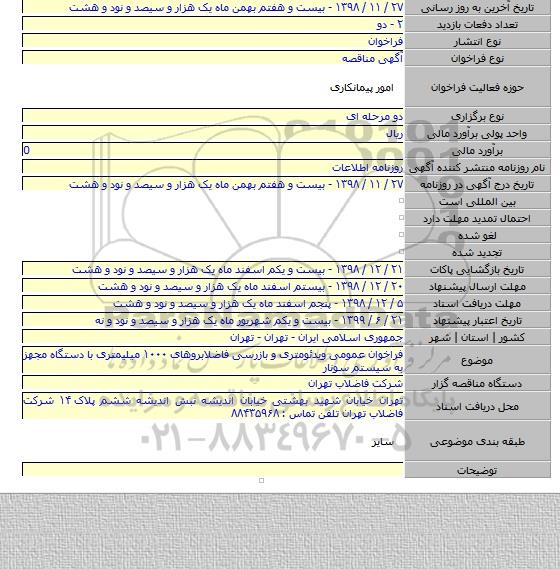 تاریخ آخرین به روز رسانی ۲۷ / ۱۱ / ۱۳۹۸ - بیست و هفتم بهمن ماه یک هزار و سیصد و نود و هشت
تعداد دفعات بازدید ۲ - دو
نوع انتشار فراخوان
نوع فراخوان آگهی مناقصه
حوزه فعالیت فراخوان امور پیمانکاری
نوع برگزاری دو مرحله ای
واحد پولی برآورد مالی ریال
برآورد مالی 0
نام روزنامه منتشر کننده آگهی روزنامه اطلاعات
تاریخ درج آگهی در روزنامه ۲۷ / ۱۱ / ۱۳۹۸ - بیست و هفتم بهمن ماه یک هزار و سیصد و نود و هشت
بین المللی است
احتمال تمدید مهلت دارد
لغو شده
تجدید شده
تاریخ بازگشایی پاکات ۲۱ / ۱۲ / ۱۳۹۸ - بیست و یکم اسفند ماه یک هزار و سیصد و نود و هشت
مهلت ارسال پیشنهاد ۲۰ / ۱۲ / ۱۳۹۸ - بیستم اسفند ماه یک هزار و سیصد و نود و هشت
مهلت دریافت اسناد ۵ / ۱۲ / ۱۳۹۸ - پنجم اسفند ماه یک هزار و سیصد و نود و هشت
تاریخ اعتبار پیشنهاد ۲۱ / ۶ / ۱۳۹۹ - بیست و یکم شهریور ماه یک هزار و سیصد و نود و نه
کشور | استان | شهر جمهوری اسلامی ایران - تهران - تهران
موضوع فراخوان عمومی ویدئومتری و بازرسی فاضلابروهای ۱۰۰۰ میلیمتری با دستگاه مجهز
به سیستم سونار
دستگاه مناقصه گزار شرکت فاضلاب تهران
محل دریافت اسناد تهران خیابان شهید بهشتی خیابان اندیشه نبش اندیشه ششم پلاک ۱۴ شرکت
فاضلاب تهران تلفن تماس : ۸۸۴۳۵۹۶۸
طبقه بندی موضوعی سایر
توضیحات
۰۲۱-۸۸۳۴۹۶۷۰-۵